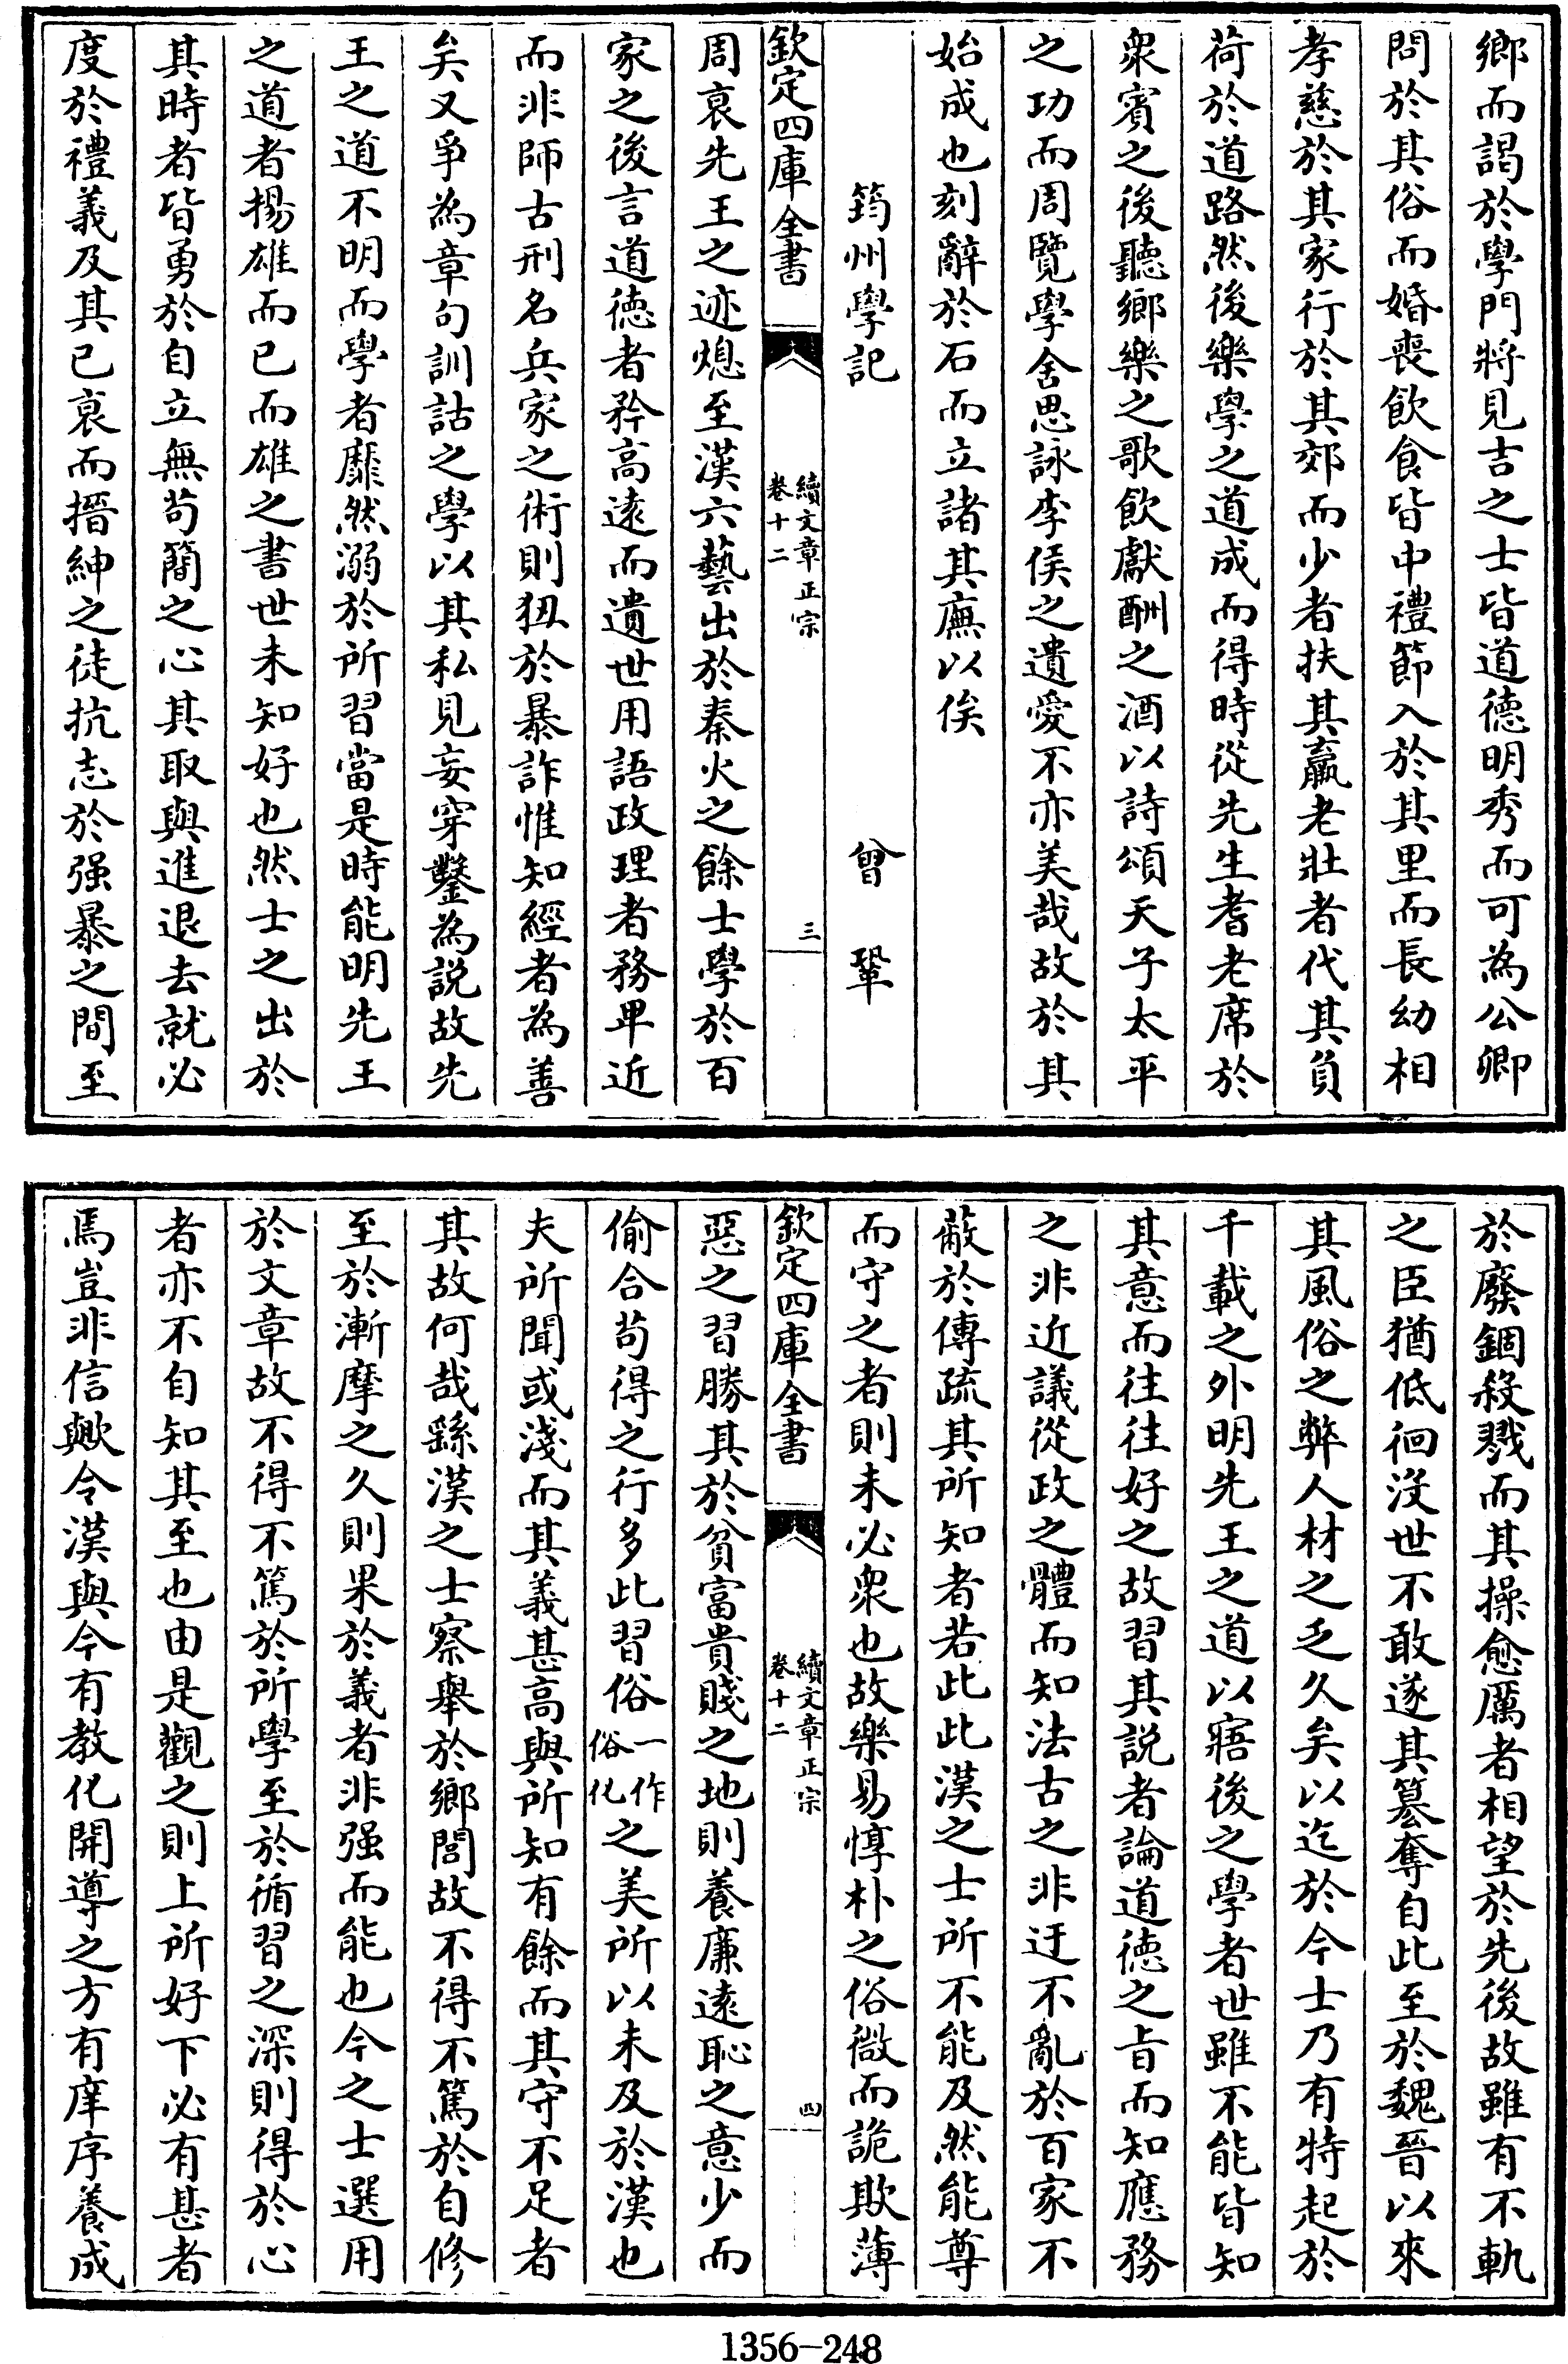 鄉而謁於學門將見吉之士皆道德明秀而可為公卿
問於其俗而婚喪飲食皆中禮節入於其里而長幼相
孝慈於其家行於其郊而少者扶其羸老壯者代其負
荷於道路然後樂學之道成而得時從先生耆老席於
衆賓之後聽鄉樂之歌飲獻酬之酒以詩頌天子太平
之功而周覽學舍思詠李侯之遺愛不亦美哉故於其
始成也刻辭於石而立諸其廡以俟
筠州學記 曾鞏
欽定四庫全書 續文章正宗 卷十二 三
周衰先王之迹熄至漢六藝出於秦火之餘士學於百
家之後言道德者矜高遠而遺世用語政理者務卑近
而非師古刑名兵家之術則狃於暴詐惟知經者為善
矣又爭為章句訓詁之學以其私見妄穿鑿為説故先
王之道不明而學者靡然溺於所習當是時能明先王
之道者揚雄而已而雄之書世未知好也然士之出於
其時者皆勇於自立無苟簡之心其取與進退去就必
度於禮義及其已衰而搢紳之徒抗志於强暴之間至
於廢錮殺戮而其操愈厲者相望於先後故雖有不軌
之臣猶低徊沒世不敢遂其簒奪自此至於魏晉以來
其風俗之弊人材之乏久矣以迄於今士乃有特起於
千載之外明先王之道以寤後之學者世雖不能皆知
其意而往往好之故習其説者論道德之旨而知應務
之非近議從政之體而知法古之非迂不亂於百家不
蔽於傳疏其所知者若此此漢之士所不能及然能尊
而守之者則未必衆也故樂易惇朴之俗微而詭欺薄
欽定四庫全書 續文章正宗 卷十二 四
惡之習勝其於貧富貴賤之地則養廉遠恥之意少而
偷合苟得之行多此習俗一作俗化之美所以未及於漢也
夫所聞或淺而其義甚高與所知有餘而其守不足者
其故何哉繇漢之士察舉於鄉閭故不得不篤於自修
至於漸摩之久則果於義者非强而能也今之士選用
於文章故不得不篤於所學至於循習之深則得於心
者亦不自知其至也由是觀之則上所好下必有甚者
焉豈非信歟令漢與今有教化開導之方有庠序養成
1356-248